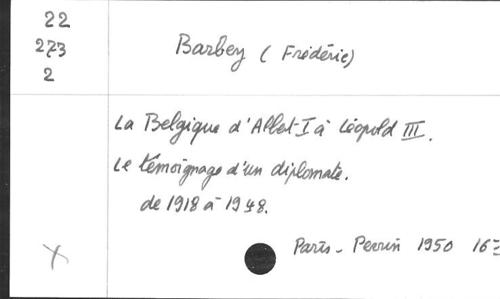 22
273
2
Barbey (Frédéric)
La Belgique d'Albert I à Léopold III.
Le témoignage d'un diplomate.
de 1918 à 1948.
X
Paris - Perrin 1950 16=